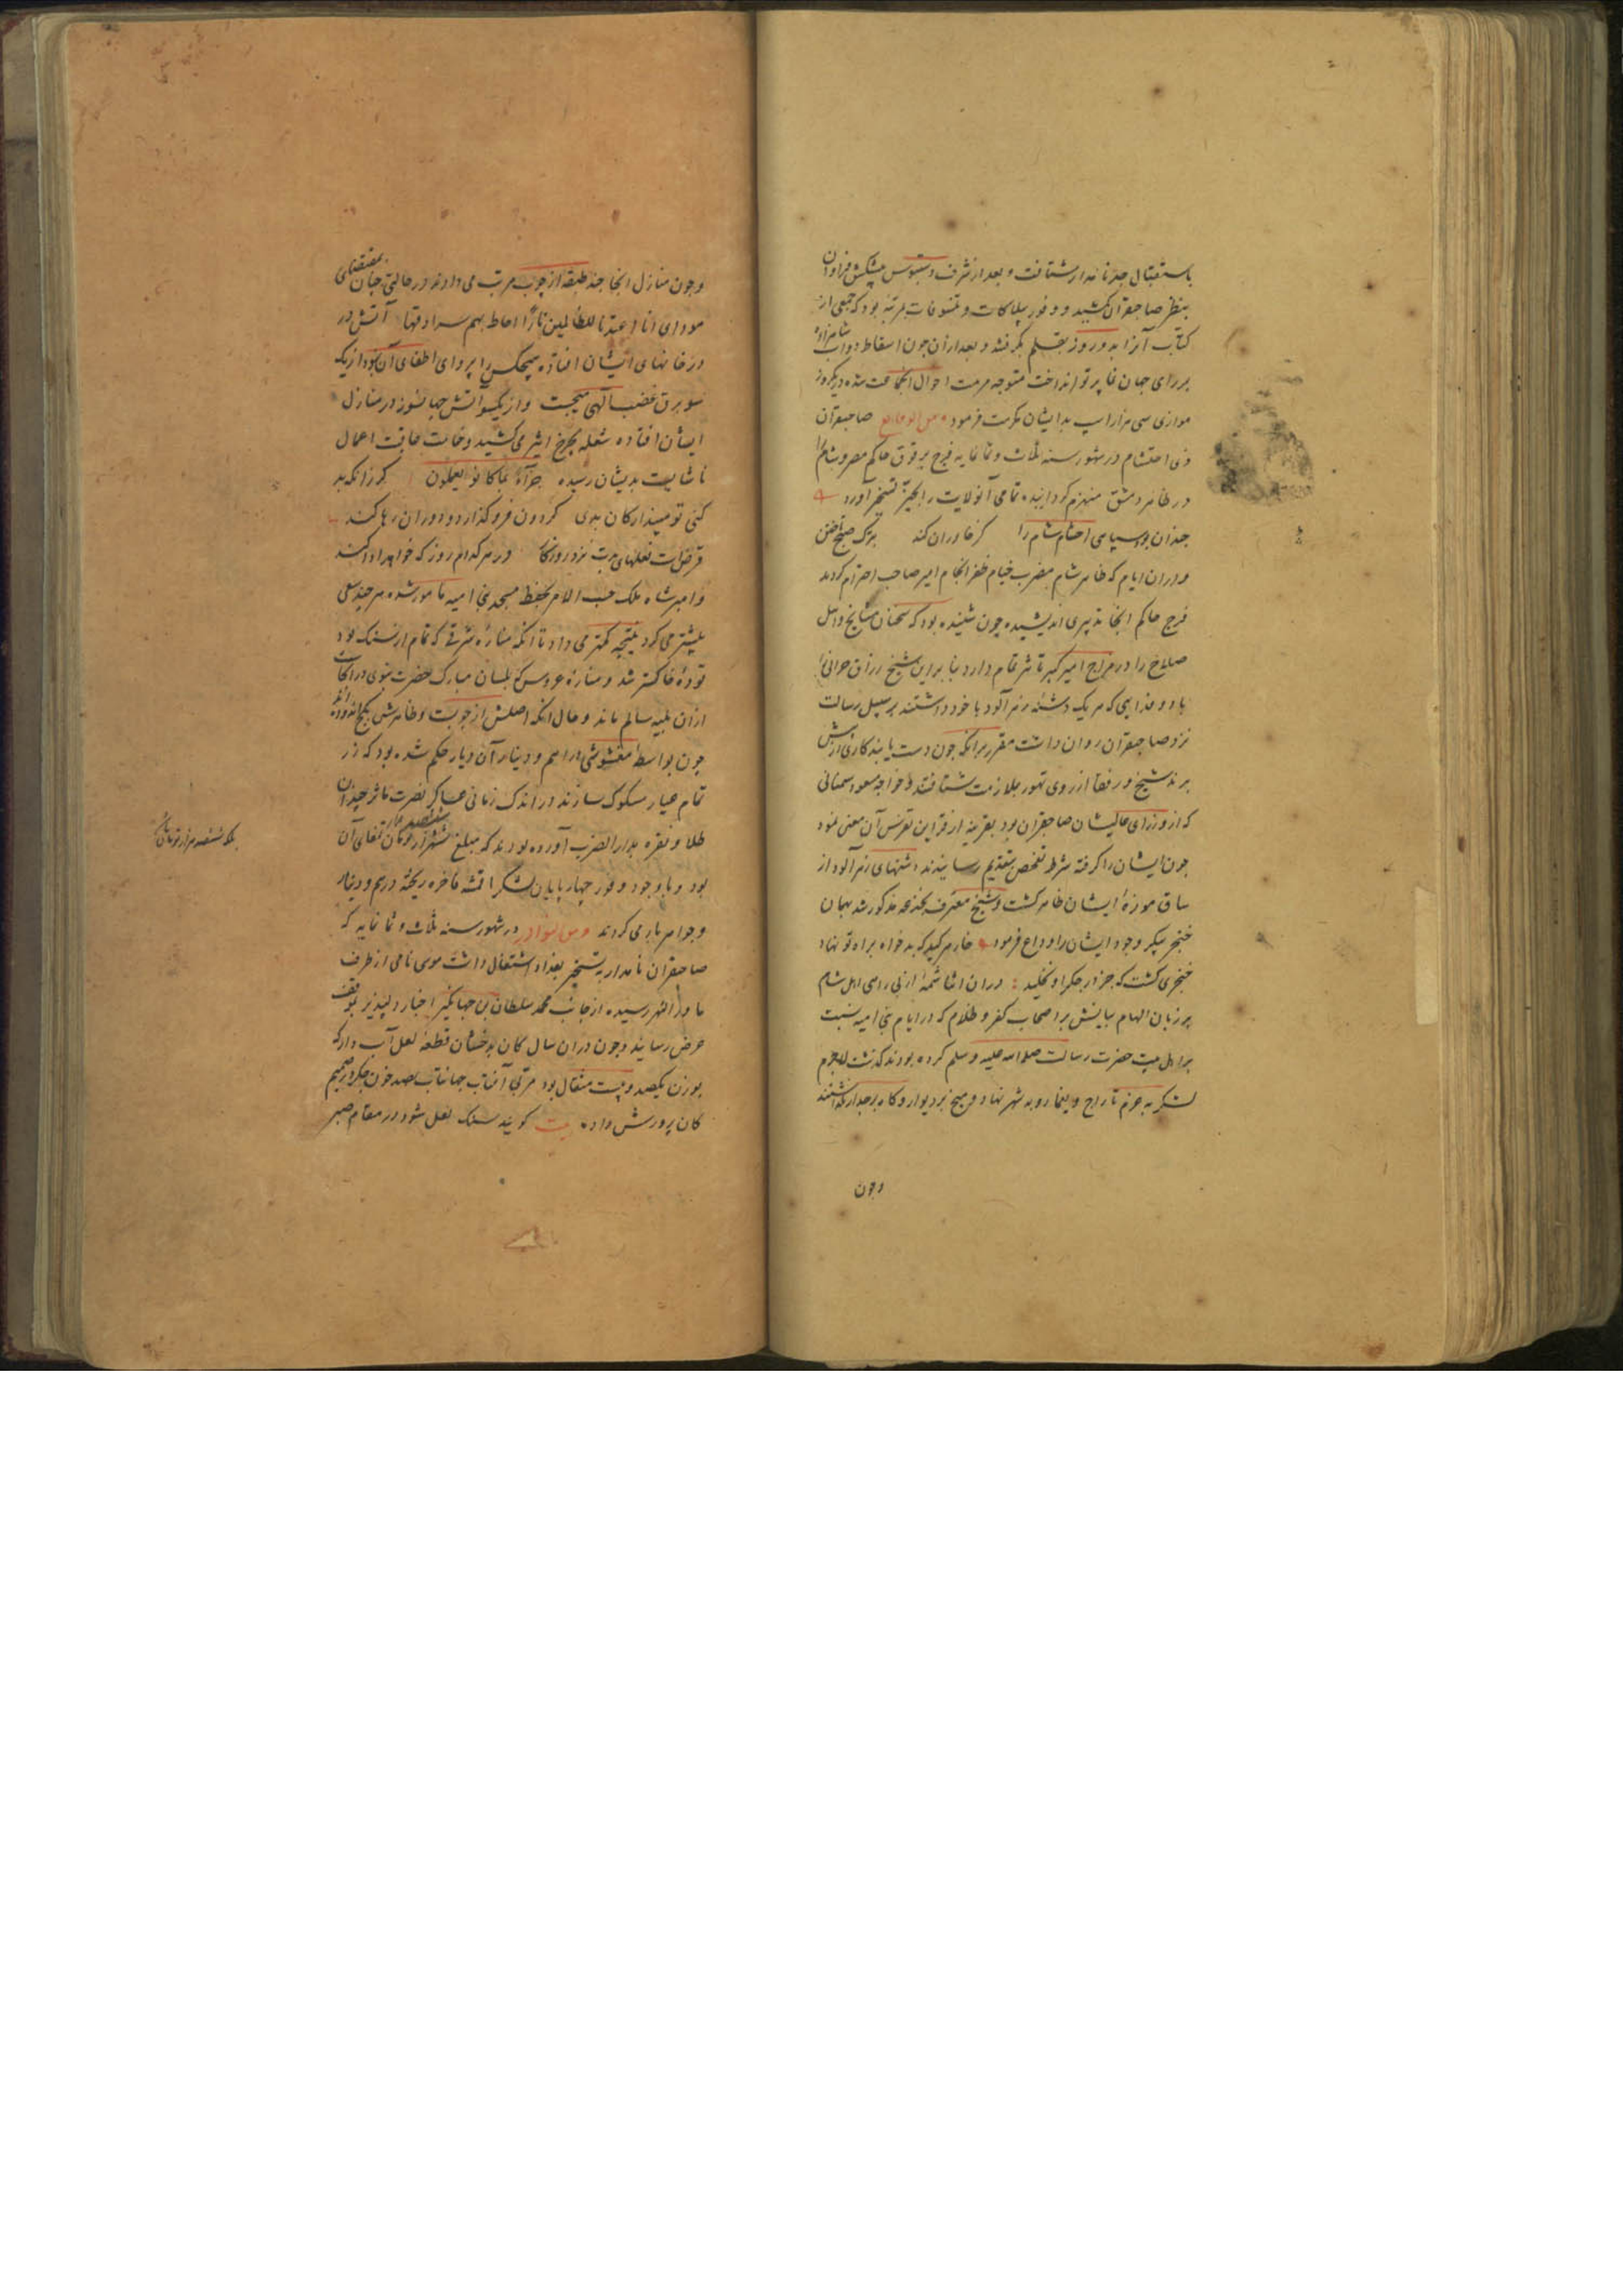 باستقبال جد نامدار شتافت و بعد از شرف دستبوس پیشکش فراوان
بنظر صاحبقران کشید و وفور بیلاکات و تنسوقات بمرتبه بود که جمعی از
کتاب آنرا بدو روز بقلم بگرفتند و بعد از آن چون اسقاط دواب شاهزاده
بر رای جهان نما پرتو انداخت متوجه مرمت احوال شده دیگر روز
موازی سی هزار اسب بدیشان مکرمت فرمود ومن الوقایع صاحبقران
ذی احتشام در شهور سنه ثلاث و ثمانمایه فرج برقوق حاکم مصر و شام را
در ظاهر دمشق منهزم کردانیده تمامی آنولایت را بحیز تسخیر آورد
چندان بود سپاسی احتشام شام را کز خاوران کند صبح
و در ان ایام که ظاهر شام مضرب خیام ظفر انجام امیر صاحب احترام کردید
فرج حاکم انجا تدبیری اندیشیده چون شنیده بود که سخنان مشایخ و اهل
صلاح را در مزاج امیر کبیر تاثیر تمام دارد بنا برین شیخ رزاق حرانی را
با دو فدایی که هر یک دشنه زهر آلود با خود داشتند بر سبیل رسالت
نزد صاحبقران روان داشت مقرر برانکه چون دست یابند کاری از پیش
برند شیخ و رفقا از روی تهور بملازمت شتافتند و خواجه مسعود سمنانی
که از وزرای عالیشان صاحبقران بود بقرینه از قراین تفرس آن معنی نمود
چون ایشان را کرفته شرط تفحص بتقدیم رسانیدند دشنهای زهر آلود از
ساق موزهٔ ایشان ظاهر کشت و شیخ معترف بخدعه مذکور شد بهمان
خنجر پیکر وجود ایشان را وداع فرمود خار هر کید که بدخواه براه تو نهاد
خنجری کشت که جز در جکر او نخلید دران اثنا شمهٔ از بی راهی اهل شام
بر زبان الهام بیانش بر اصحاب کفر و ظلام که در ایام بنی امیه نسبت
براهل بیت حضرت رسالت صلی الله علیه وسلم کرده بودند کذشت لاجرم
لشکر به عزم تاراج و یغما رو به شهر نهاد و میخ بر دیوار و کاه بر جدار نکذاشتند
وچون
وچون منازل انجا چند طبقه از چوب مرتب می دادند در حالتی چنان بمقتضای
مودای انا اعتدنا للظالمین نارا احاط بهم سرادقها آتش در
در خانهای ایشان افتاده هیچکس را پروای اطفای آن نبود از یک
سو برق غضب الهی میجست و از یکسو آتش جهانسوز در منازل
ایشان افتاده شعله بچرخ اثیر می کشید و خامت عاقبت اعمال
ناشایست بدیشان رسیده جزآء بما کانوا یعملون کر زانکه بد
کنی تو مپندار کان بدی کردون فرو کذارد و دوران رها کند
قرض است فعلهای بدت نزد روزکار در هر کدام روز که خواهد ادا کند
و امیر شاه ملک حسب الامر بحفظ مسجد بنی امیه مامور شده هر چند سعی
بیشتر می کرد نتیجه کمتر می داد تا انکه مناره شرقی که تمام از سنک بود
تودهٔ خاکستر شد و مناره عروس که بلسان مبارک حضرت نبوی
ازان بلیه سالم ماند و حال انکه اصلش از چوبست و ظاهرش بکچ اندوده اند
چون بواسطه مغشوشی دراهم و دینار آن دیار حکم شده بود که زر
تمام عیار مسکوک سازند در اندک زمانی عساکر نصرت ماثر چندان
طلا و نقره بدار الضرب آورده بودند که مبلغ ششصد هزار تومان تمغای آن
بود و با وجود وفور چهارپایان لشکر اقمشه فاخره ریخته درهم و دینار
و جواهر بار می کردند ومن النوادر در شهور سنه ثلاث و ثمانمایه که
صاحبقران نامدار به تسخیر بغداد اشتغال داشت موسی نامی از طرف
ماوراء النهر رسیده از جانب محمد سلطان بن جهانکیر اخبار دلپذیر بموقف
عرض رسانید و چون دران سال کان بدخشان قطعهٔ لعل آبدار که
بوزن یکصد و بیست مثقال بود مربی آفتاب جهانتاب بصد خون جکر در صمیم
کان پرورش داده بیت کویند سنک لعل شود در مقام صبر